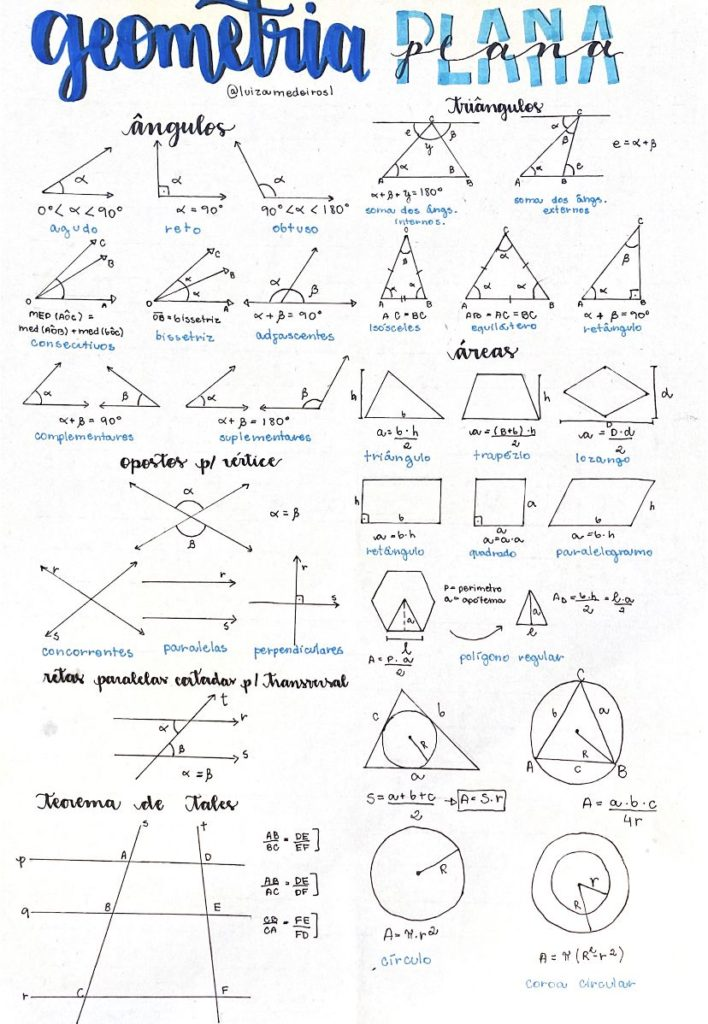 geometria PLANA
plana
@luizamedeiros1
ângulos
α
0° < α < 90°
agudo
α
α = 90°
reto
α
90° < α < 180°
obtuso
O A B C
MED (AÔC) =
med(AÔB) + med(BÔC)
consecutivos
O A B C α α
OB = bissetriz
bissetriz
α β
α + β = 90°
adjascentes
α β
α + β = 90°
complementares
α β
α + β = 180°
suplementares
opostos p/ vértice
α
β
α = β
r
s
concorrentes
r
s
paralelas
r
s
perpendiculares
retas paralelas cortadas p/ transversal
t
r
α
β
s
α = β
teorema de tales
s t
p A D
q B E
r C F
AB/BC = DE/EF
AB/AC = DE/DF
CB/CA = FE/FD
triângulos
C
e y β
α B
A B
α + β + y = 180°
soma dos ângs.
internos.
C
α β
α e
A B
e = α + β
soma dos ângs.
externos
C
β
α α
A B
AC = BC
isósceles
C
α
α α
A B
AB = AC = BC
equilátero
C
β
α
A B
α + β = 90°
retângulo
áreas
h
b
a = b·h/2
triângulo
h
a = (B+b)·h/2
trapézio
d
D
a = D·d/2
lozango
h
b
a = b·h
retângulo
a
a
a = a·a
quadrado
h
b
a = b·h
paralelogramo
P = perímetro
a = apótema
a
l
A = P·a/2
a
l
AΔ = b·h/2 = l·a/2
polígono regular
c b
R
a
S = a+b+c/2 → A = S·r
C
b a
R
A c B
A = a·b·c/4r
R
A = π·r²
círculo
r
R
A = π(R²-r²)
coroa circular